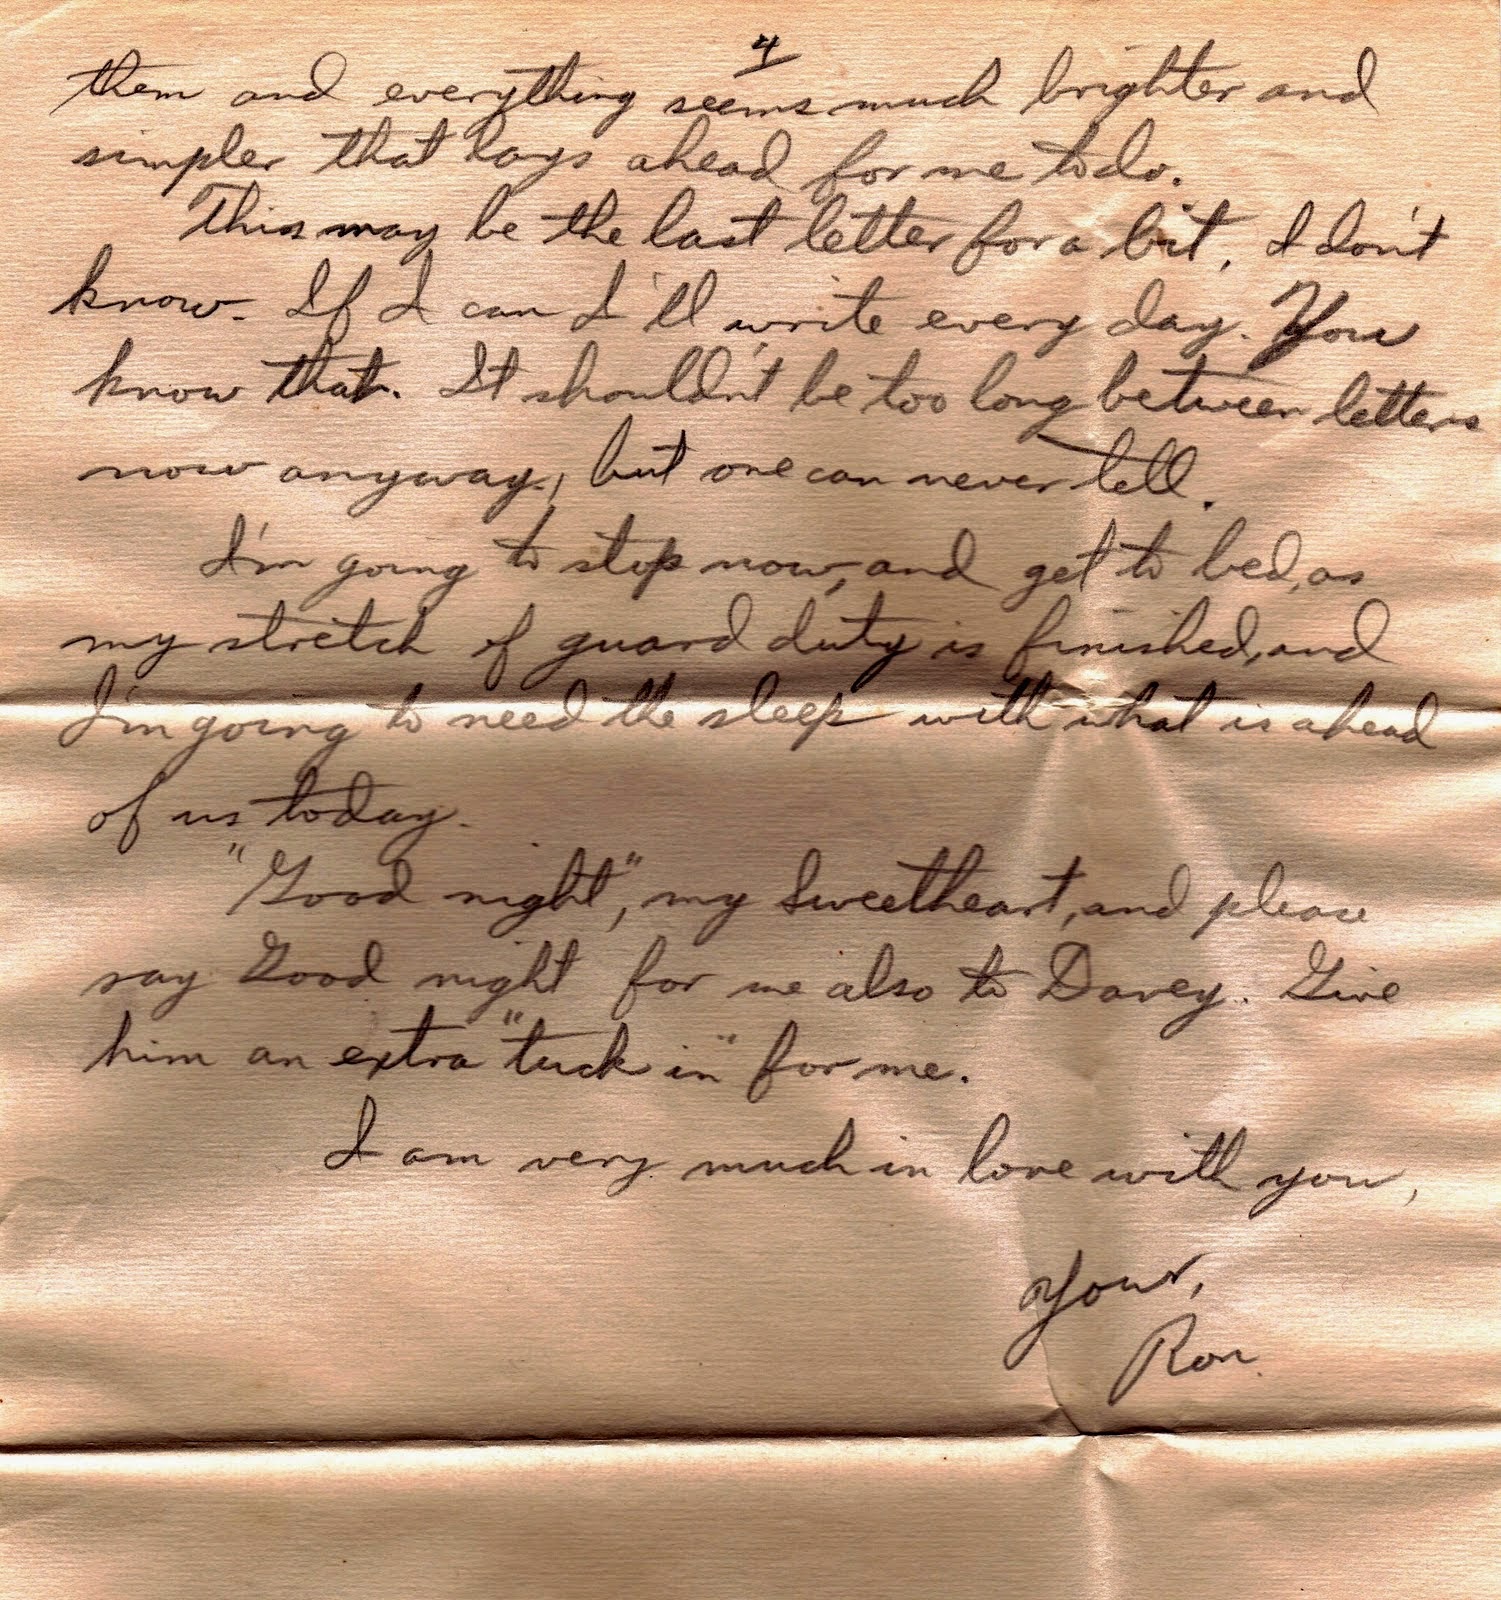 4
them and everything seems much brighter and
simpler that lays ahead for me to do.
This may be the last letter for a bit, I don't
know. If I can I'll write every day. You
know that. It shouldn't be too long between letters
now anyway, but one can never tell.
I'm going to stop now, and get to bed, as
my stretch of guard duty is finished, and
I'm going to need the sleep with what is ahead
of us today.
"Good night", my Sweetheart, and please
say Good night for me also to Davey. Give
him an extra "tuck in" for me.
I am very much in love with you,
Your,
Ron.